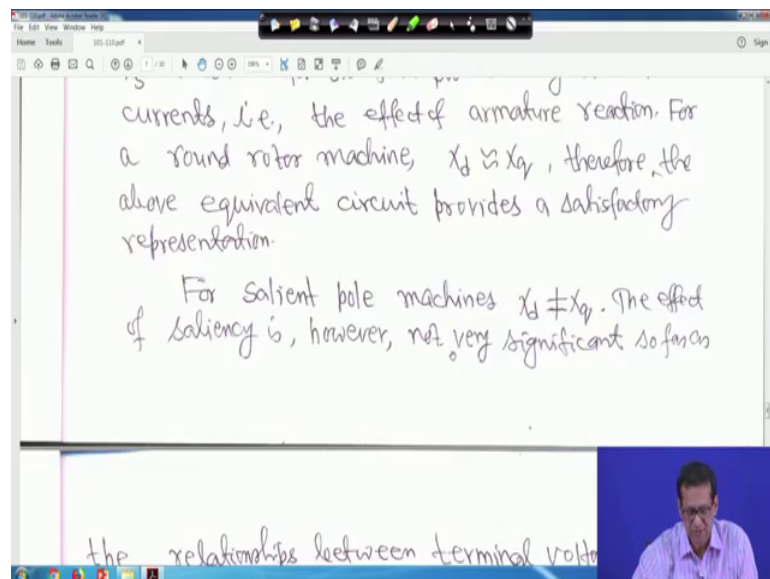 101-110.pdf - Adobe Acrobat Reader DC
File Edit View Window Help
Home Tools 101-110.pdf ×
Sign
currents, i.e., the effect of armature reaction. For
a round rotor machine, Xd ≈ Xq, therefore, the
above equivalent circuit provides a satisfactory
representation.
For salient pole machines Xd ≠ Xq. The effect
of saliency is, however, not very significant so far as
the relationships between terminal